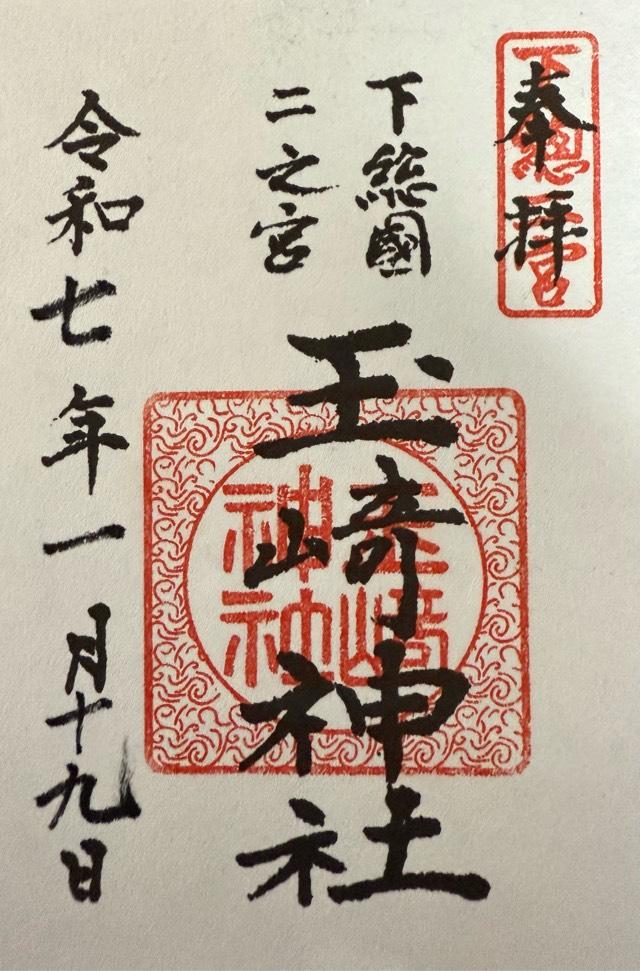 奉拝
下總二宮
下総國
二之宮
玉﨑神社
玉崎神社
令和七年一月十九日